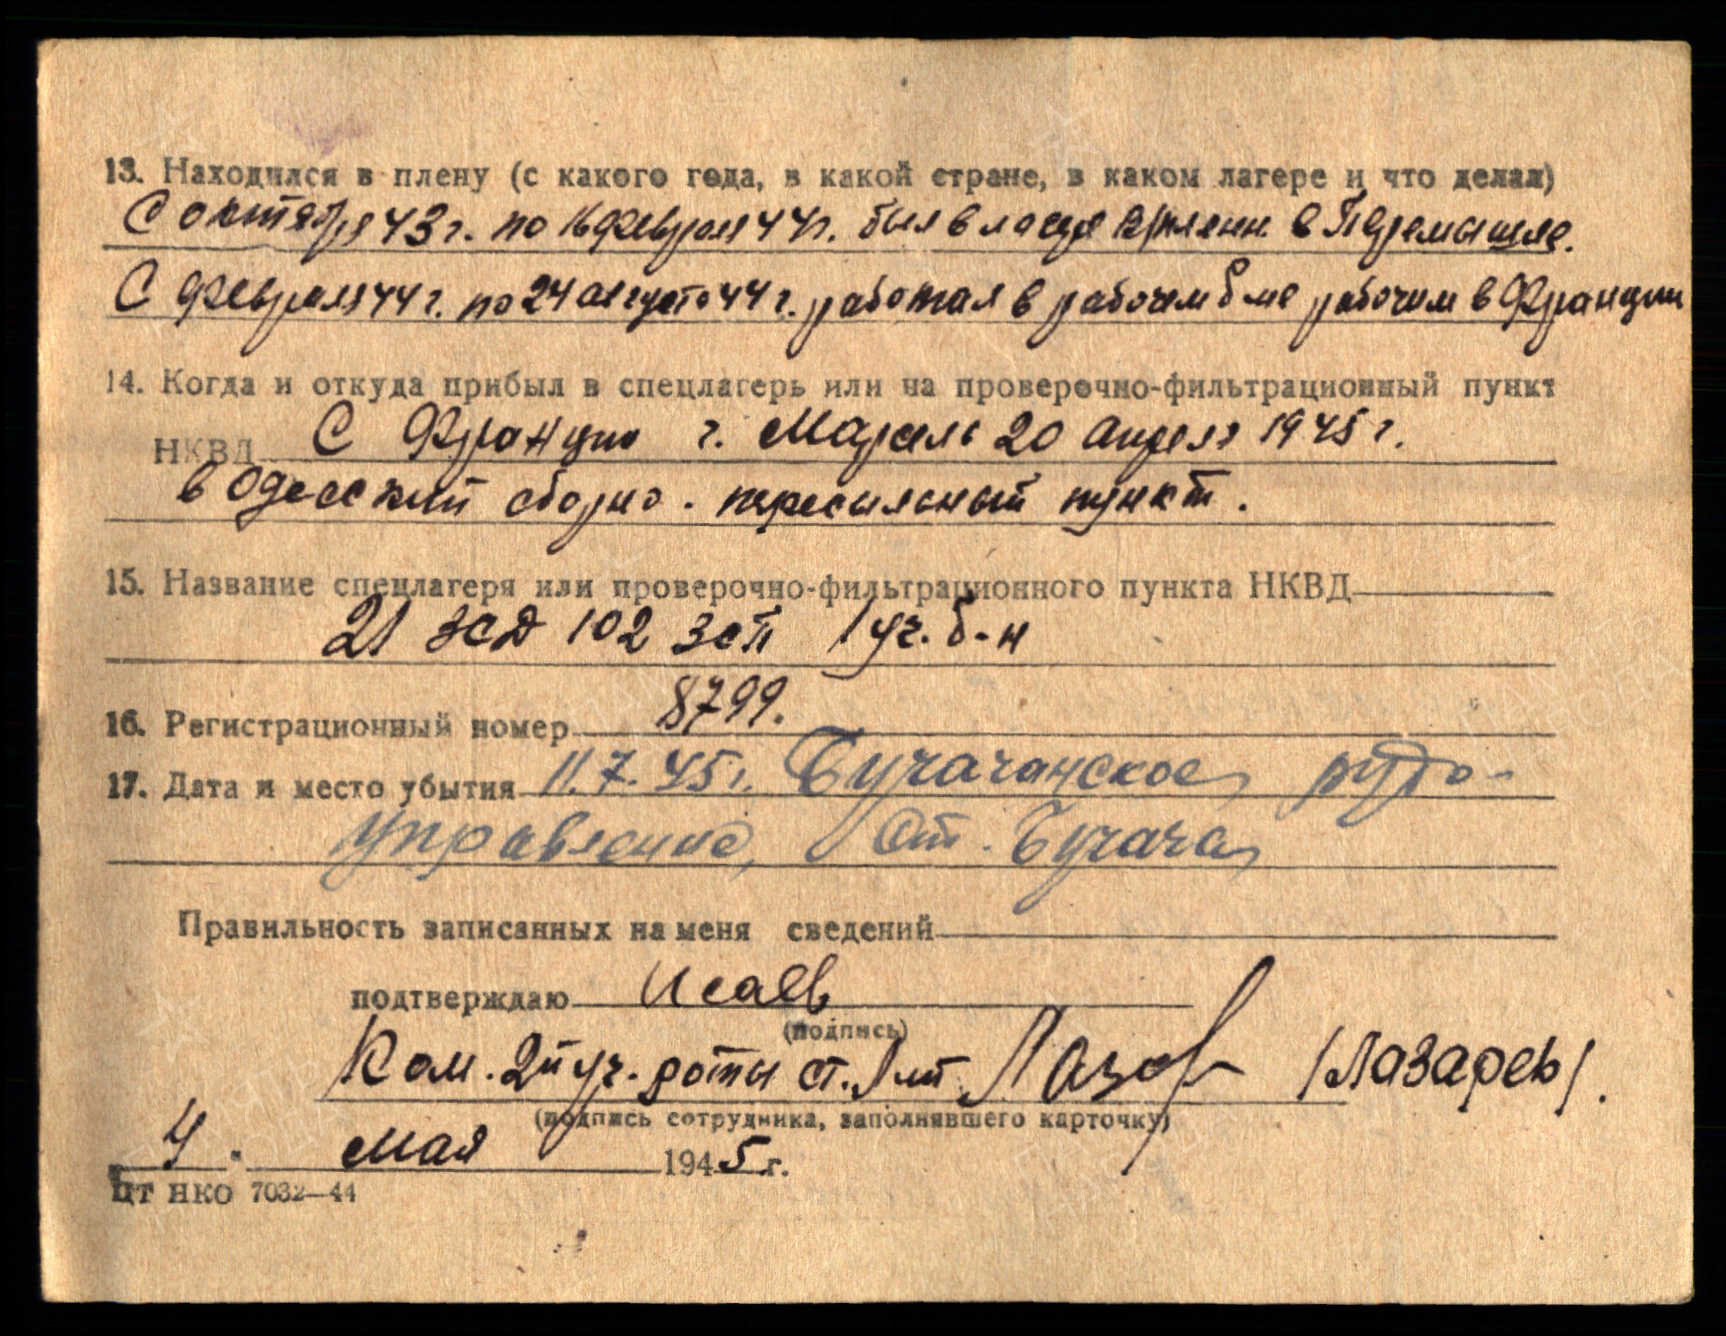 13. Находился в плену (с какого года, в какой стране, в каком лагере и что делал)
С октября 43 г. по 16 февраля 44 г. был в лагере в/пленн. в Перемышле.
С февраля 44 г. по 24 августа 44 г. работал в рабочем б-не рабочим в Франции
14. Когда и откуда прибыл в спецлагерь или на проверочно-фильтрационный пункт
НКВД С Франции г. Марсель 20 апреля 1945 г.
в Одесский сборно-пересыльный пункт.
15. Название спецлагеря или проверочно-фильтрационного пункта НКВД
21 ЗСД 102 зсп 1 уч. б-н
16. Регистрационный номер 8799.
17. Дата и место убытия 11.7.45 г. Букачачинское рудо-
управление, ст. Букачача
Правильность записанных на меня сведений
подтверждаю Исаев
(подпись)
Ком. 2й уч. роты ст. л-т /Лазарев/.
(подпись сотрудника, заполнявшего карточку)
4 мая 1945 г.
ЦТ НКО 7032—44